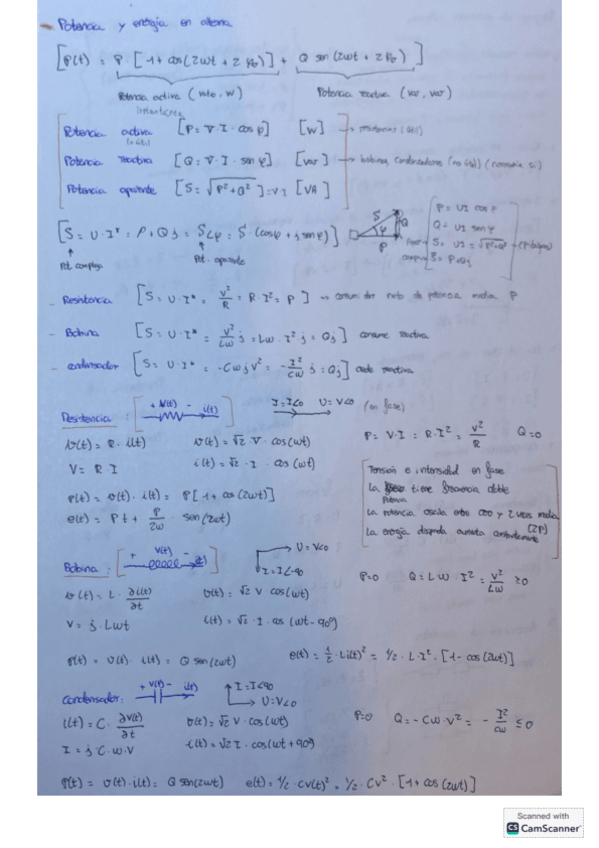 Potencia y energía en alterna
[p(t) = P · [1 + cos(2wt + 2φv)] + Q sen(2wt + 2φv)]
Potencia activa (vatio, W) Potencia reactiva (var, var)
instantánea
Potencia activa [P = V · I · cos φ] [W] → resistencias (útil)
(útil)
Potencia reactiva [Q = V · I · sen φ] [var] → bobinas, condensadores (no útil)
Potencia aparente [S = √P²+Q²] = V·I [VA]
[S = U · I* = P + Qj = S∠φ = S · (cosφ + j senφ)]
Pot. compleja Pot. aparente
S Q φ P
P = UI cos φ
Q = UI sen φ
S = UI = √P²+Q²
S = P + Qj
- Resistencia [S = U · I* = V²/R = R · I² = P] → consumidor neto de potencia media P
- Bobina [S = U · I* = V²/Lw j = Lw · I² j = Qj] consume reactiva
- condensador [S = U · I* = -Cwj V² = - I²/Cw j = Qj] cede reactiva
Resistencia: [+ V(t) - i(t)] I = I∠0 U = V∠0 (en fase)
v(t) = R · i(t) v(t) = √2 · V · cos(wt) P = V · I = R · I² = V²/R Q = 0
V = R · I i(t) = √2 · I · cos(wt)
p(t) = v(t) · i(t) = P[1 + cos(2wt)]
e(t) = Pt + P/2w · sen(2wt)
Tensión e intensidad en fase
La potencia tiene frecuencia doble
La potencia oscila entre cero y 2 veces media (2P)
La energía disipada aumenta constantemente
Bobina: [+ V(t) - i(t)] U = V∠0
I = I∠-90
P = 0 Q = Lw · I² = V²/Lw ≥ 0
v(t) = L · ∂i(t)/∂t v(t) = √2 V cos(wt)
V = j · LwI i(t) = √2 · I · cos(wt - 90º)
p(t) = v(t) · i(t) = Q sen(2wt) e(t) = 1/2 · Li(t)² = 1/2 · L · I² · [1 - cos(2wt)]
Condensador: + V(t) - i(t) I = I∠90
U = V∠0
i(t) = C · ∂v(t)/∂t v(t) = √2 V · cos(wt) P = 0 Q = -Cw · V² = - I²/cw ≤ 0
I = j · C · w · V i(t) = √2 I · cos(wt + 90º)
p(t) = v(t) · i(t) = Q sen(2wt) e(t) = 1/2 · CV(t)² = 1/2 · CV² · [1 + cos(2wt)]
Scanned with
CS CamScanner